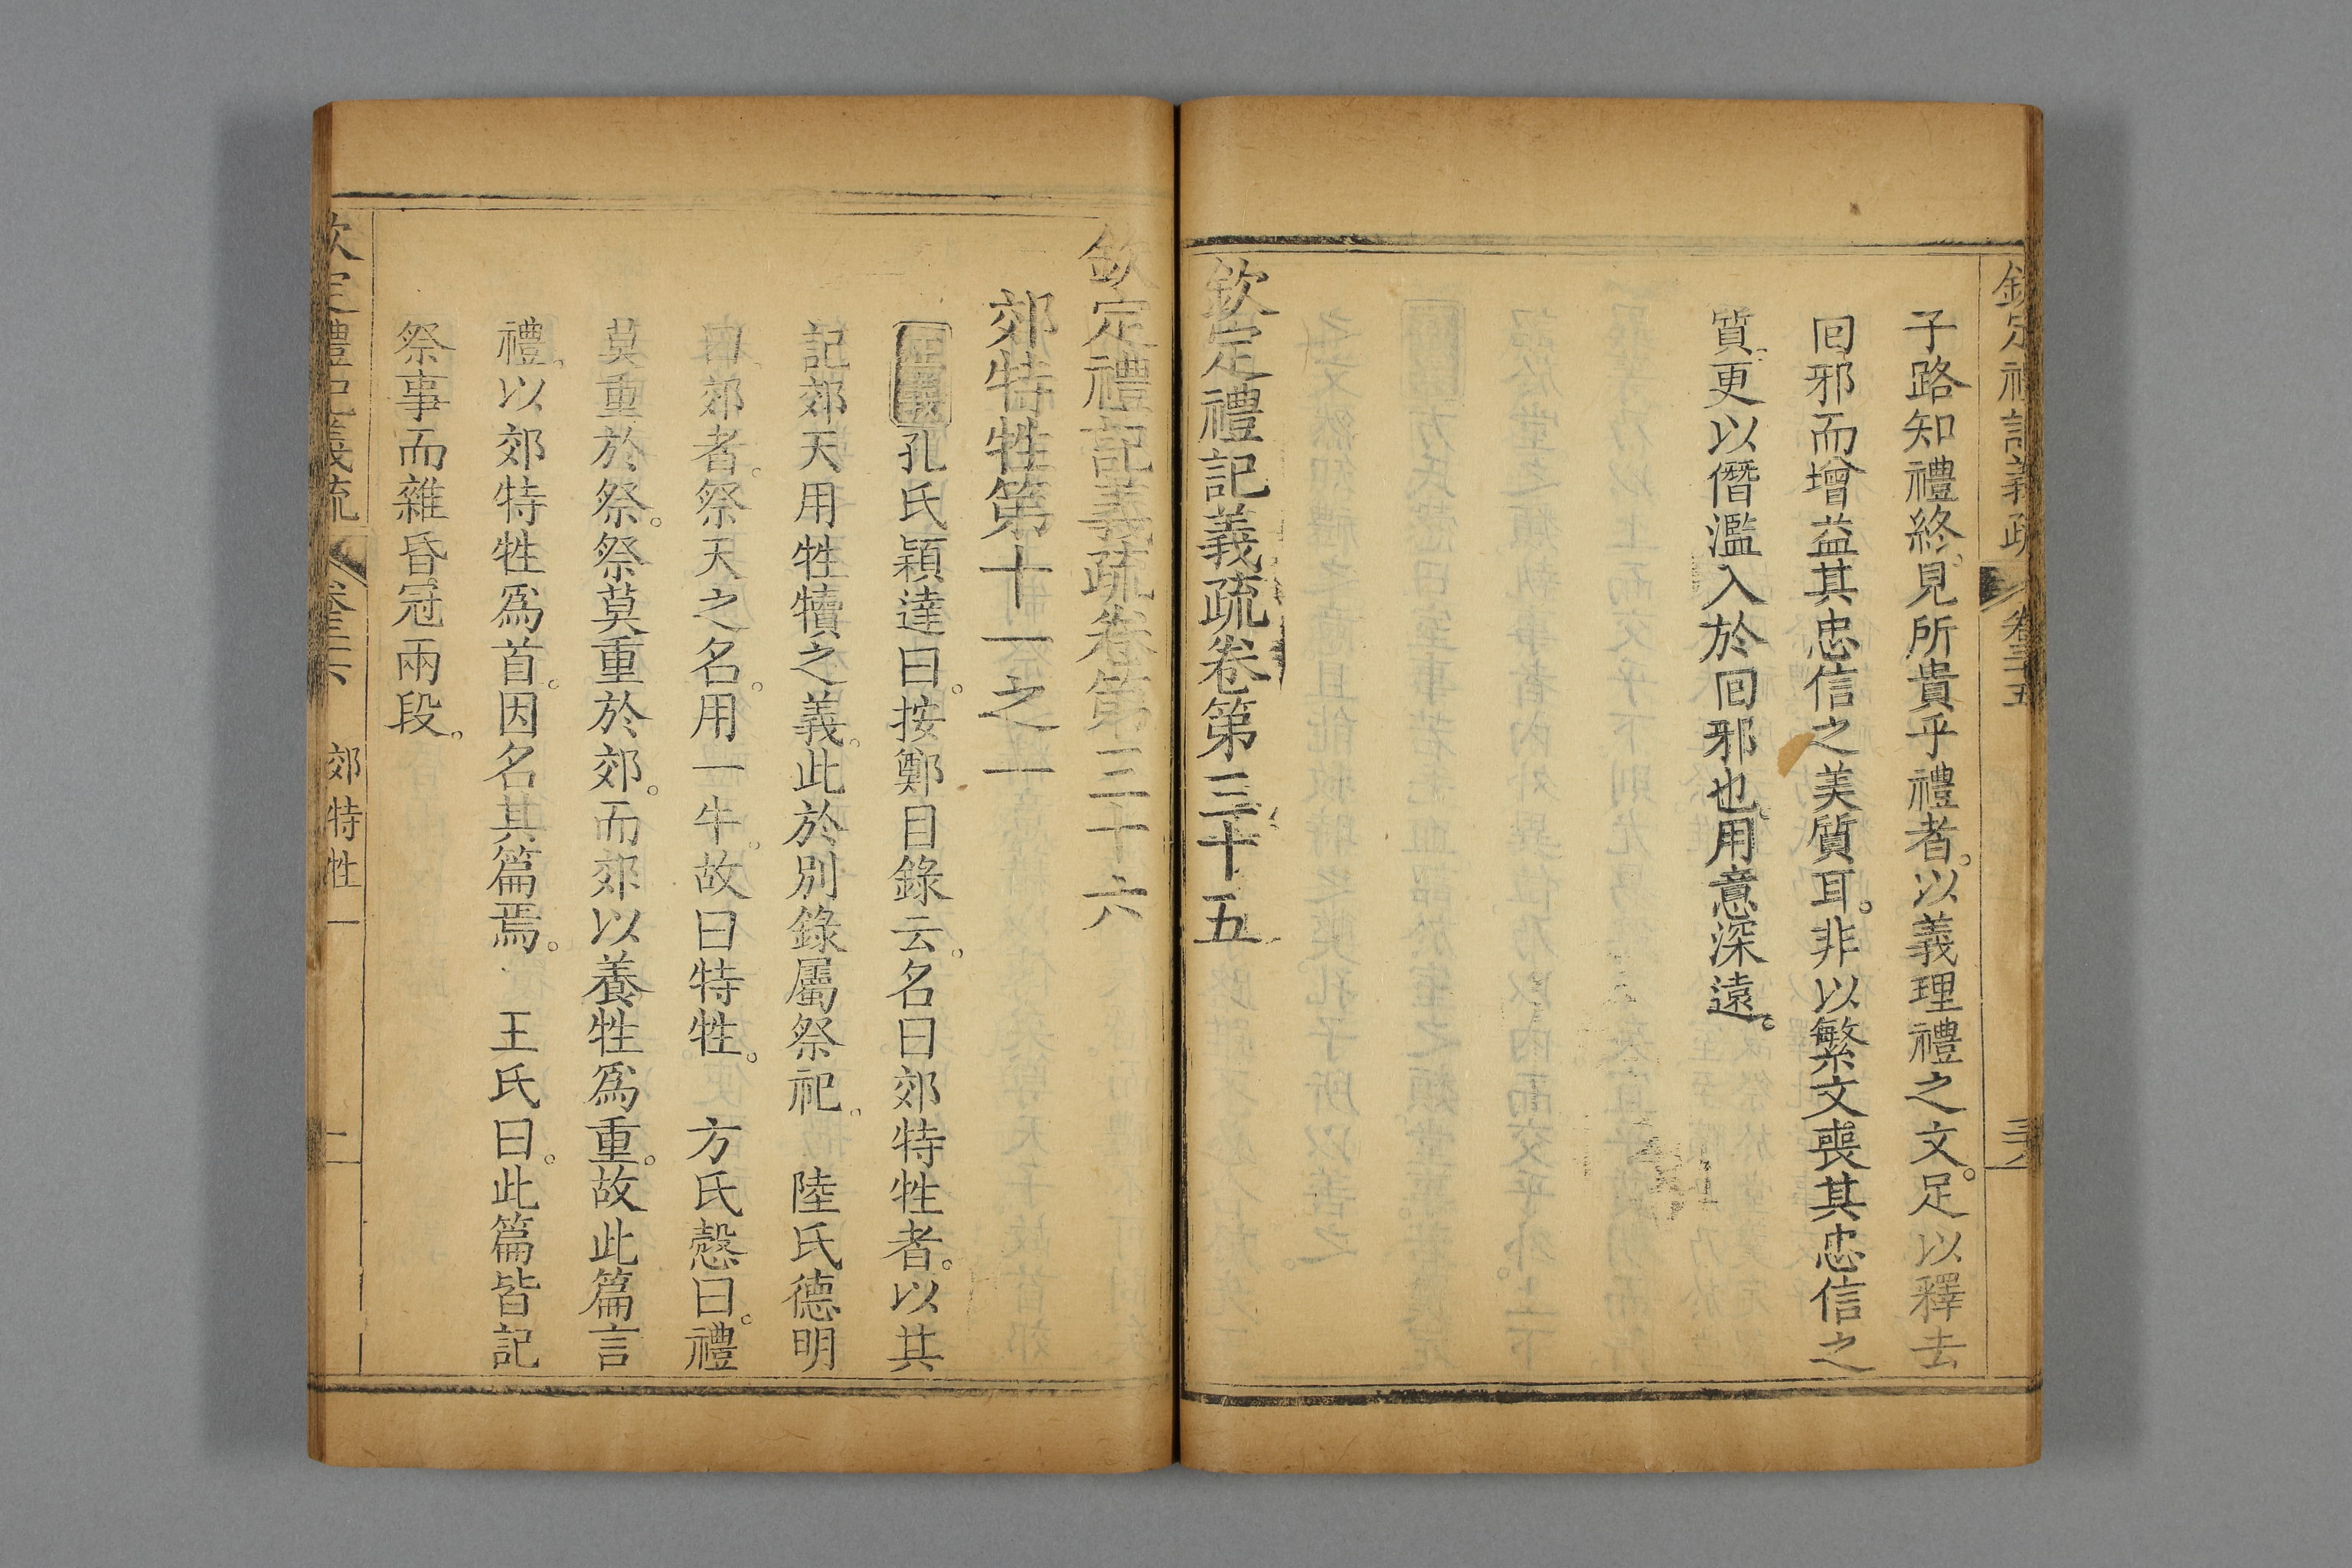 欽定禮記義疏 卷三十五
子路知禮終見所貴乎禮者。以義理禮之文。足以釋去
回邪而增益其忠信之美質耳。非以繁文喪其忠信之
質。更以僭濫入於回邪也。用意深遠。
欽定禮記義疏卷第三十五
欽定禮記義疏卷第三十六
郊特牲第十一之一
正義孔氏穎達曰。按鄭目錄云。名曰郊特牲者。以其
記郊天用牲犢之義。此於別錄屬祭祀。 陸氏德明
郊者。祭天之名。用一牛。故曰特牲。 方氏慤曰。禮
莫重於祭。祭莫重於郊。而郊以養牲爲重。故此篇言
禮。以郊特牲爲首。因名其篇焉。 王氏曰。此篇皆記
祭事而雜昏冠兩段。
欽定禮記義疏 卷三十六 郊特牲一 一